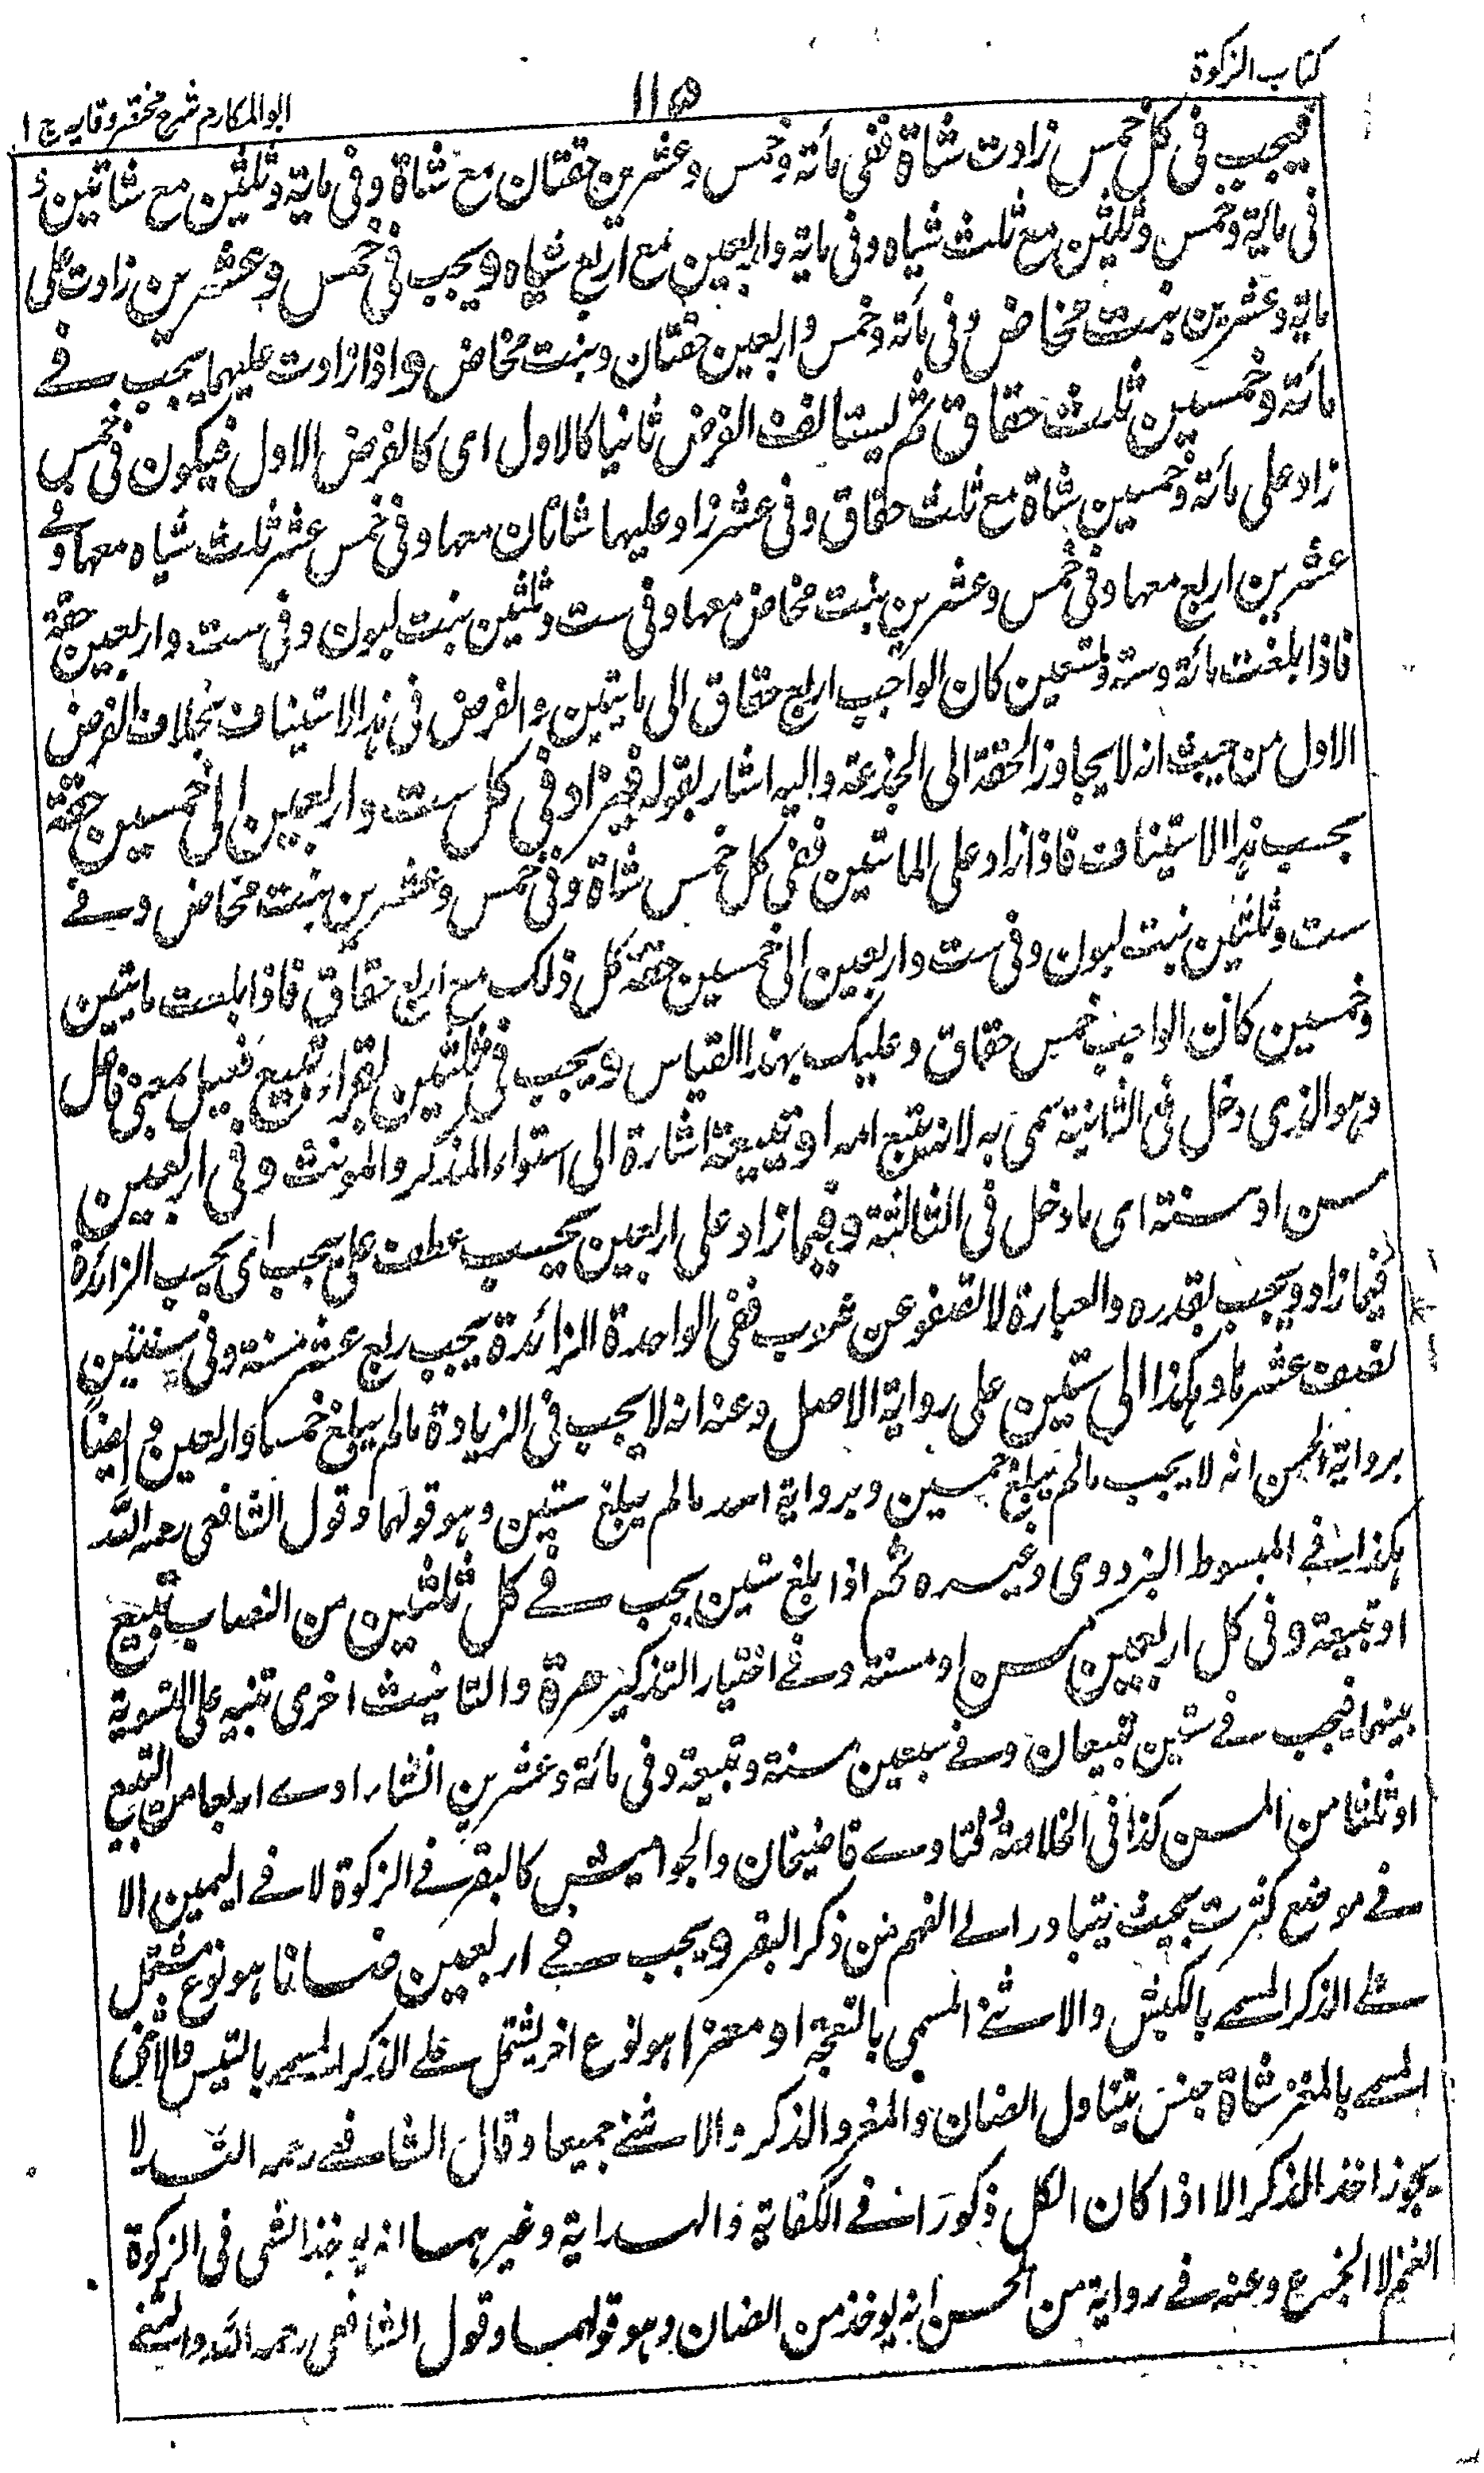 كتاب الزكوة
١١٥
ابو المكارم شرح مختصر وقايه ج ١
فيجب فى كل خمس زادت شاة ففى مأئة وخمس وعشرين حقتان مع شاة وفى ماية وثلثين مع شاتين و
فى مائة وخمس وثلثين مع ثلث شياه وفى ماية واربعين مع اربع شياه ويجب فى خمس وعشرين زادت على
ماية وعشرين بنت مخاض وفى مأئة وخمس واربعين حقتان وبنت مخاض واذا زادت عليهما يجب فے
مائة وخمسين ثلث حقاق ثم يستانف الفرض ثانيا كالاول اى كالفرض الاول فيكون فى خمس
زاد على مائة وخمسين شاة مع ثلث حقاق وفى عشر زاد عليها شاتان معها وفى خمس عشر ثلث شياه معها وفے
عشرين اربع معها وفى خمس وعشرين بنت مخاض معها وفى ست وثلثين بنت لبون وفى ست واربعين حقة
فاذا بلغت مائة وستة وتسعين كان الواجب اربع حقاق الى مايتين والفرض فى هذا الاستيناف بخلاف الفرض
الاول من حيث انه لا يجاوز الحقة الى الجذعة واليه اشار بقوله فيزاد فى كل ست واربعين الى خمسين حقة
بحسب هذا الاستيناف فاذا زاد على المائتين ففى كل خمس شاة وفى خمس وعشرين بنت مخاض وفے
ست وثلثين بنت لبون وفى ست واربعين الى خمسين حقة كل ذلك مع اربع حقاق فاذا بلغت مائتين
وخمسين كان الواجب خمس حقاق وعليك بهذا القياس ويجب فى ثلثين بقرا تبيع فعيل بمعنى فاعل
وهو الذى دخل فى الثانية سمى به لانه يتبع امه او تبيعة اشارة الى استواء المذكر والمونث وفى اربعين
مسن او مسنة اى ما دخل فى الثالثة وفيما زاد على اربعين يحسب عطف على يجب اى يحسب الزائدة
فيما زاد ويجب بقدره والعبارة لا تصفو عن شوب ففى الواحدة الزائدة يجب ربع عشر مسنة وفى سنتين
نصف عشرها وهكذا الى ستين على رواية الاصل وعنه انه لا يجب فى الزيادة مالم يبلغ خمسا واربعين و ايضاً
برواية الحسن انه لا يجب مالم يبلغ خمسين وبرواية اسد مالم يبلغ ستين وهو قولهما وقول الشافعى رحمه الله
هكذا فے المبسوط البزدوى وغيره ثم اذا بلغ ستين يجب فے كل ثلثين من النصاب تبيع
او تبيعة وفى كل اربعين مسن او مسنة وفے اختيار التذكير مرة والتانيث اخرى تنبيه على التسوية
بينهما فيجب فے ستين تبيعان وفے سبعين مسنة وتبيعة وفى مائة وعشرين ان شاء ادے اربعا من التبيع
او ثلثا من المسن كذا فى الخلاصة وفتاوے قاضيخان والجواميش كالبقر فے الزكوة لا فے اليمين الا
فے موضع كثرت بحيث يتبادر الى الفهم من ذكر البقر ويجب فے اربعين ضانا هو نوع مشتمل
علے الذكر المسمے بالكبش والانثے المسمى بالنعجة او معزا هو نوع اخر يشتمل علے الذكر المسمے بالتيس والانثى
المسمے بالمعز شاة جنس يتناول الضان والمعز والذكر والانثے جميعا وقال الشافعے رحمه الله لا
يجوز اخذ الذكر الا اذا كان الكل ذكورا فے الكفاية والهداية وغيرهما انه يوخذ الثنى فى الزكوة
الغنم لا الجذع وعنه فے رواية من الحسن انه يوخذ من الضان وهو قولهما وقول الشافعى رحمه الله والثنے